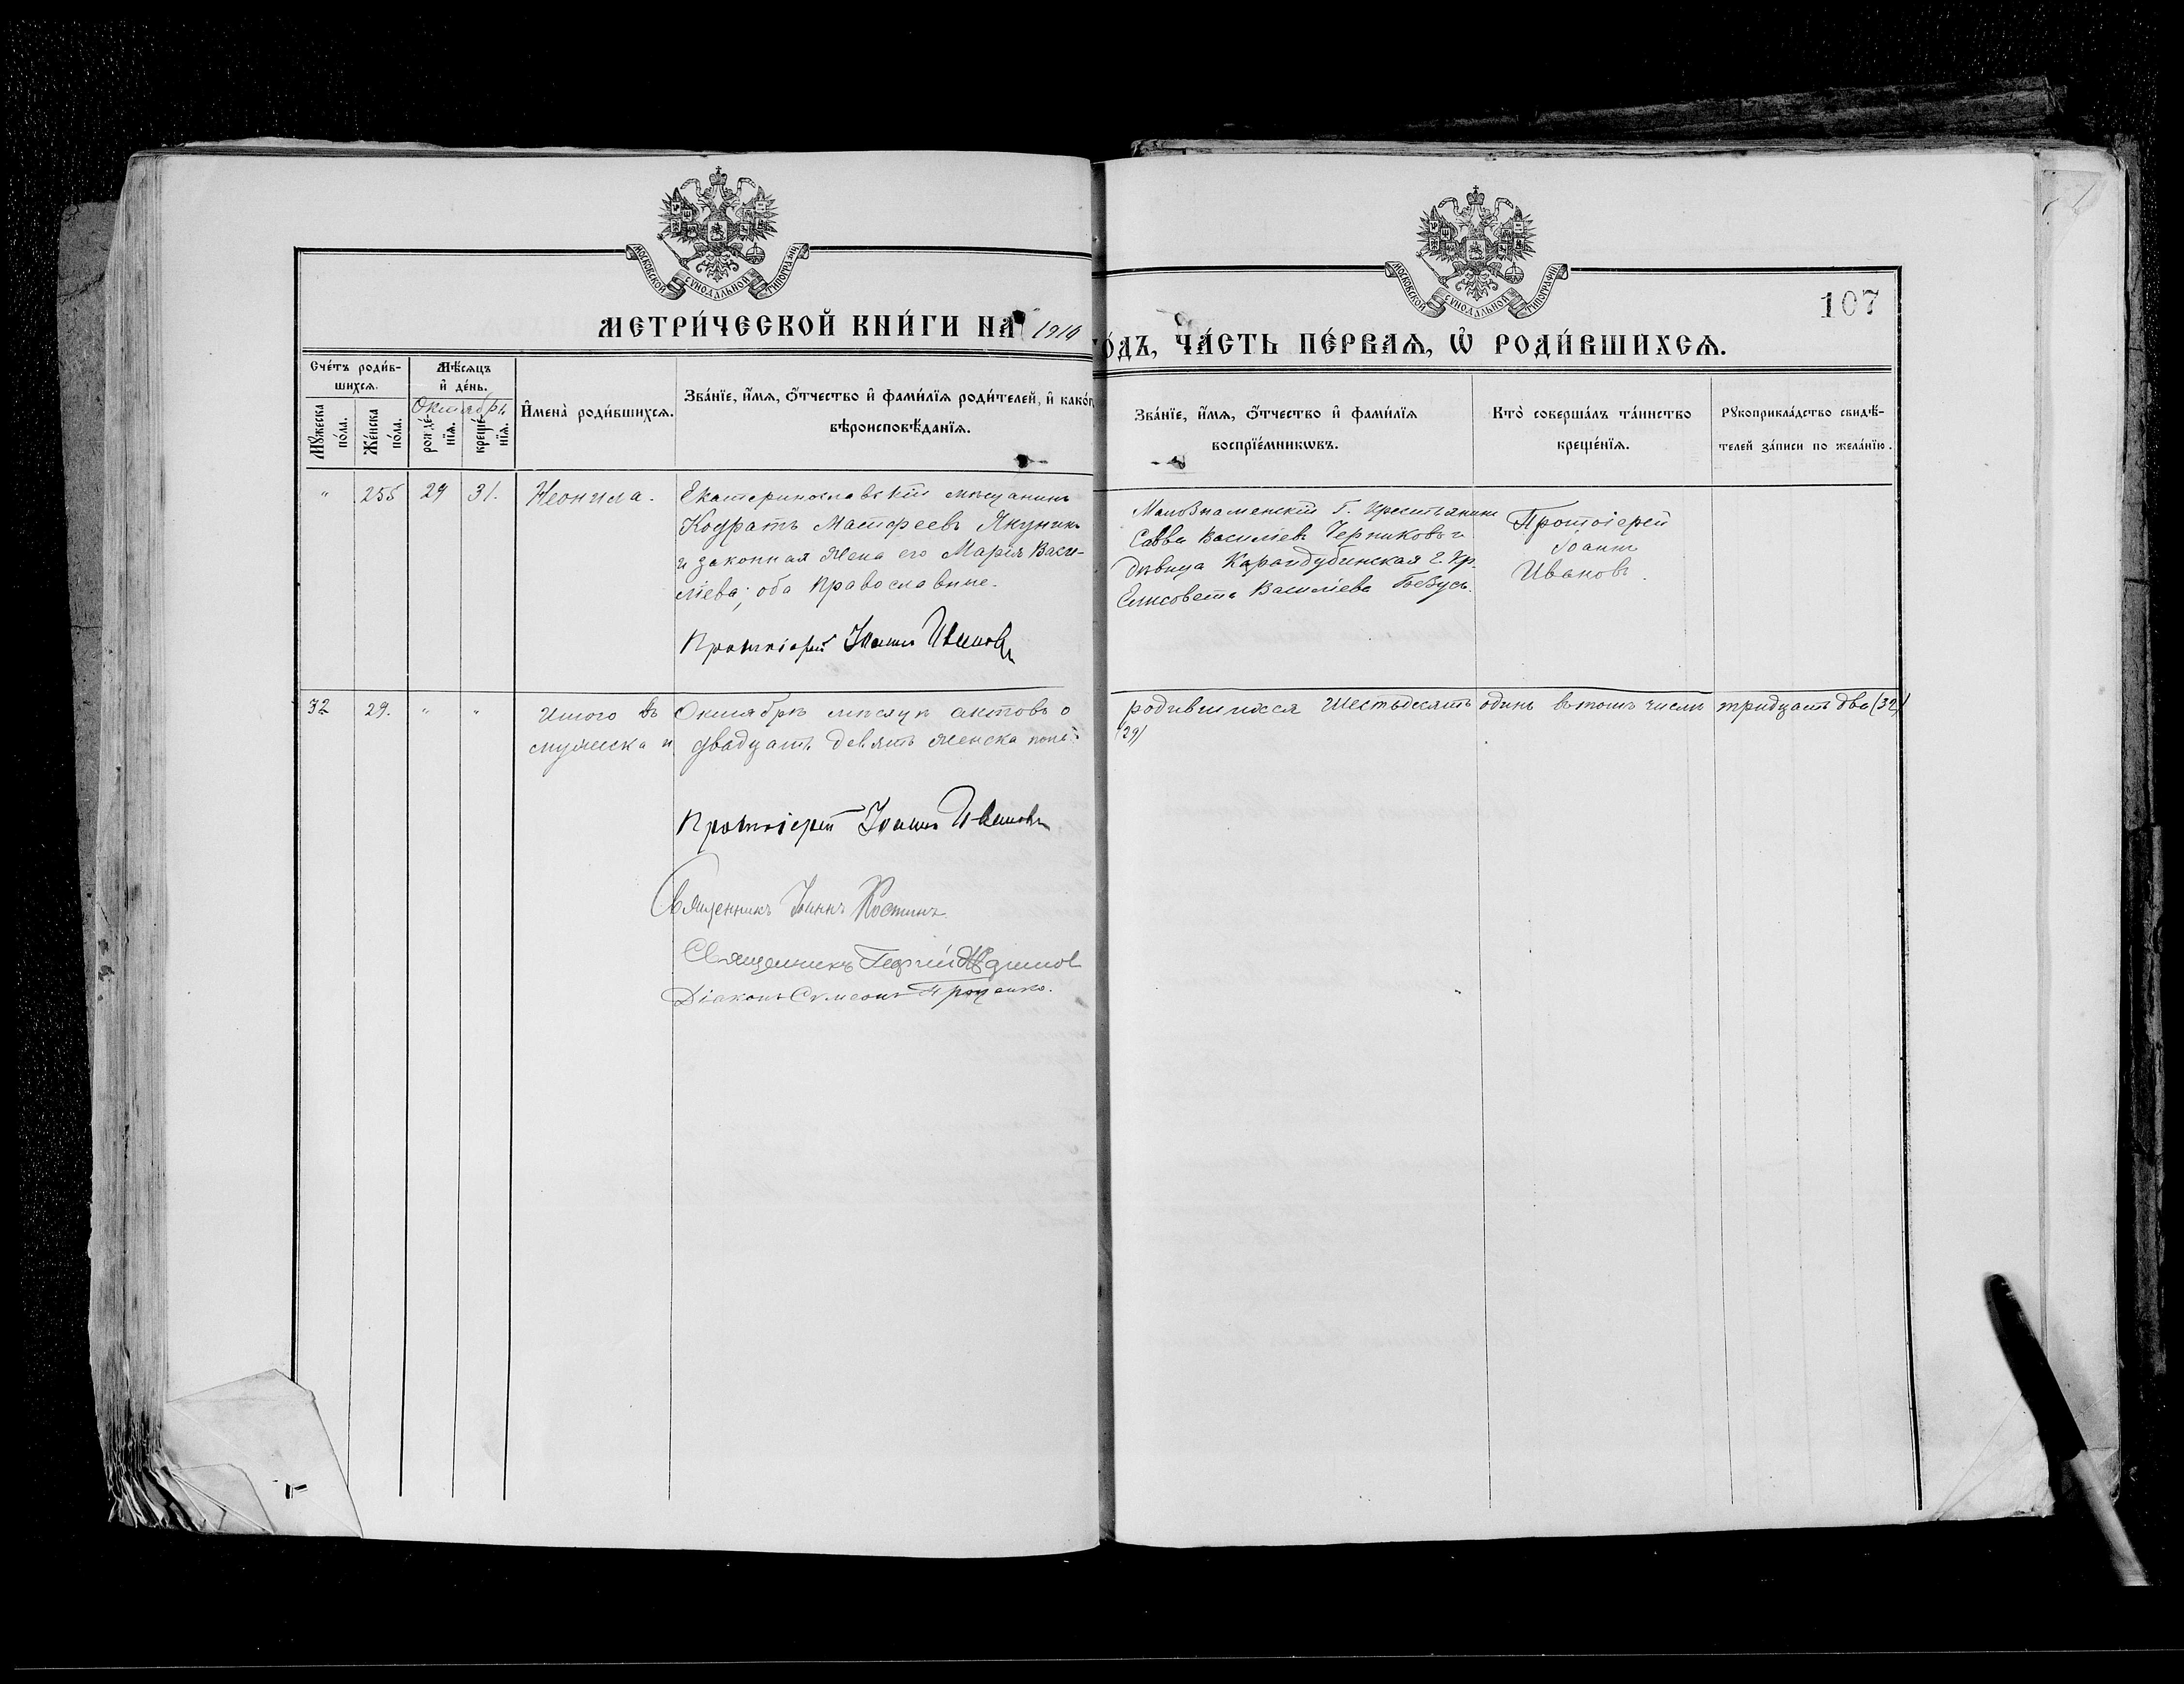 МОСКОВСКОЙ СѴНОДАЛЬНОЙ ТИПОГРАФІИ
МОСКОВСКОЙ СѴНОДАЛЬНОЙ ТИПОГРАФІИ
107
МЕТРИ́ЧЕСКОЙ КНИ́ГИ НА 1914
ГО́ДЪ, ЧА́СТЬ ПЕ́РВАѦ, Ѡ҆ РОДИ́ВШИХСѦ.
Сче́тъ роди́в-
шихсѧ.
Мꙋ́жеска
по́ла.
Же́нска
по́ла.
Мѣ́сѧцъ
и҆ де́нь.
Октябрь
рожде́-
нїѧ.
креще́-
нїѧ.
И҆мена̀ роди́вшихсѧ.
Зва́нїе, и҆́мѧ, ѻ҆́тчество и҆ фами́лїѧ роди́телей, и҆ како́гѡ
вѣроисповѣ́данїѧ.
Зва́нїе, и҆́мѧ, ѻ҆́тчество и҆ фами́лїѧ
воспрїе́мникѡвъ.
Кто̀ соверша́лъ та́инство
креще́нїѧ.
Рꙋкоприкла́дство свидѣ́-
телей за́писи по жела́нїю.
" 255 29 31. Неонила.
Екатеринославскій мѣщанинъ
Кодратъ Матфеевъ Якунинъ
и законная жена его Марія Васи-
ліева; оба православные.
Протоіерей Іоаннъ Ивановъ
Маловнаменскій Г. крестьянинъ
Савва Василіевъ Черниковъ и
дѣвица Карандубинская г. кр.
Елисовета Василіева Бебусь.
Протоіерей
Іоаннъ
Ивановъ.
32 29. " " Итого въ Октябрѣ мѣсяцѣ актовъ о родившихся шестьдесятъ одинъ въ томъ числѣ тридцать два (32)
мужеска и двадцать девять женска пола (29)
Протоіерей Іоаннъ Ивановъ
Священникъ Іоаннъ Костинъ
Священникъ Георгій
Діаконъ Сѵмеонъ Проценко.